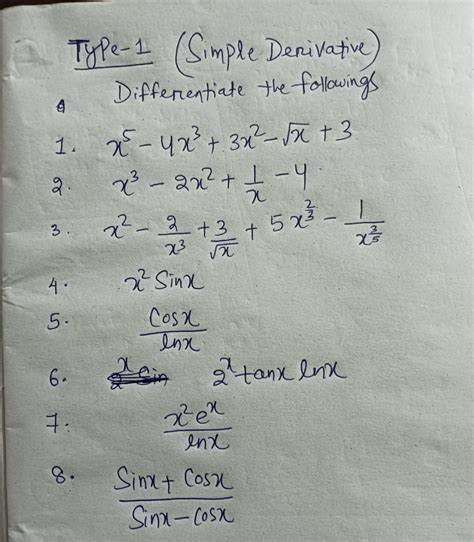 Type-1 (Simple Derivative)
Q Differentiate the followings
1. x⁵ - 4x³ + 3x² - √x + 3
2. x³ - 2x² + 1/x - 4.
3. x² - 2/x³ + 3/√x + 5x^(2/3) - 1/x^(3/5)
4. x² Sinx
5. Cosx/lnx
6. 2^x tanx lnx
7. x²e^x/lnx
8. Sinx + Cosx / Sinx - Cosx